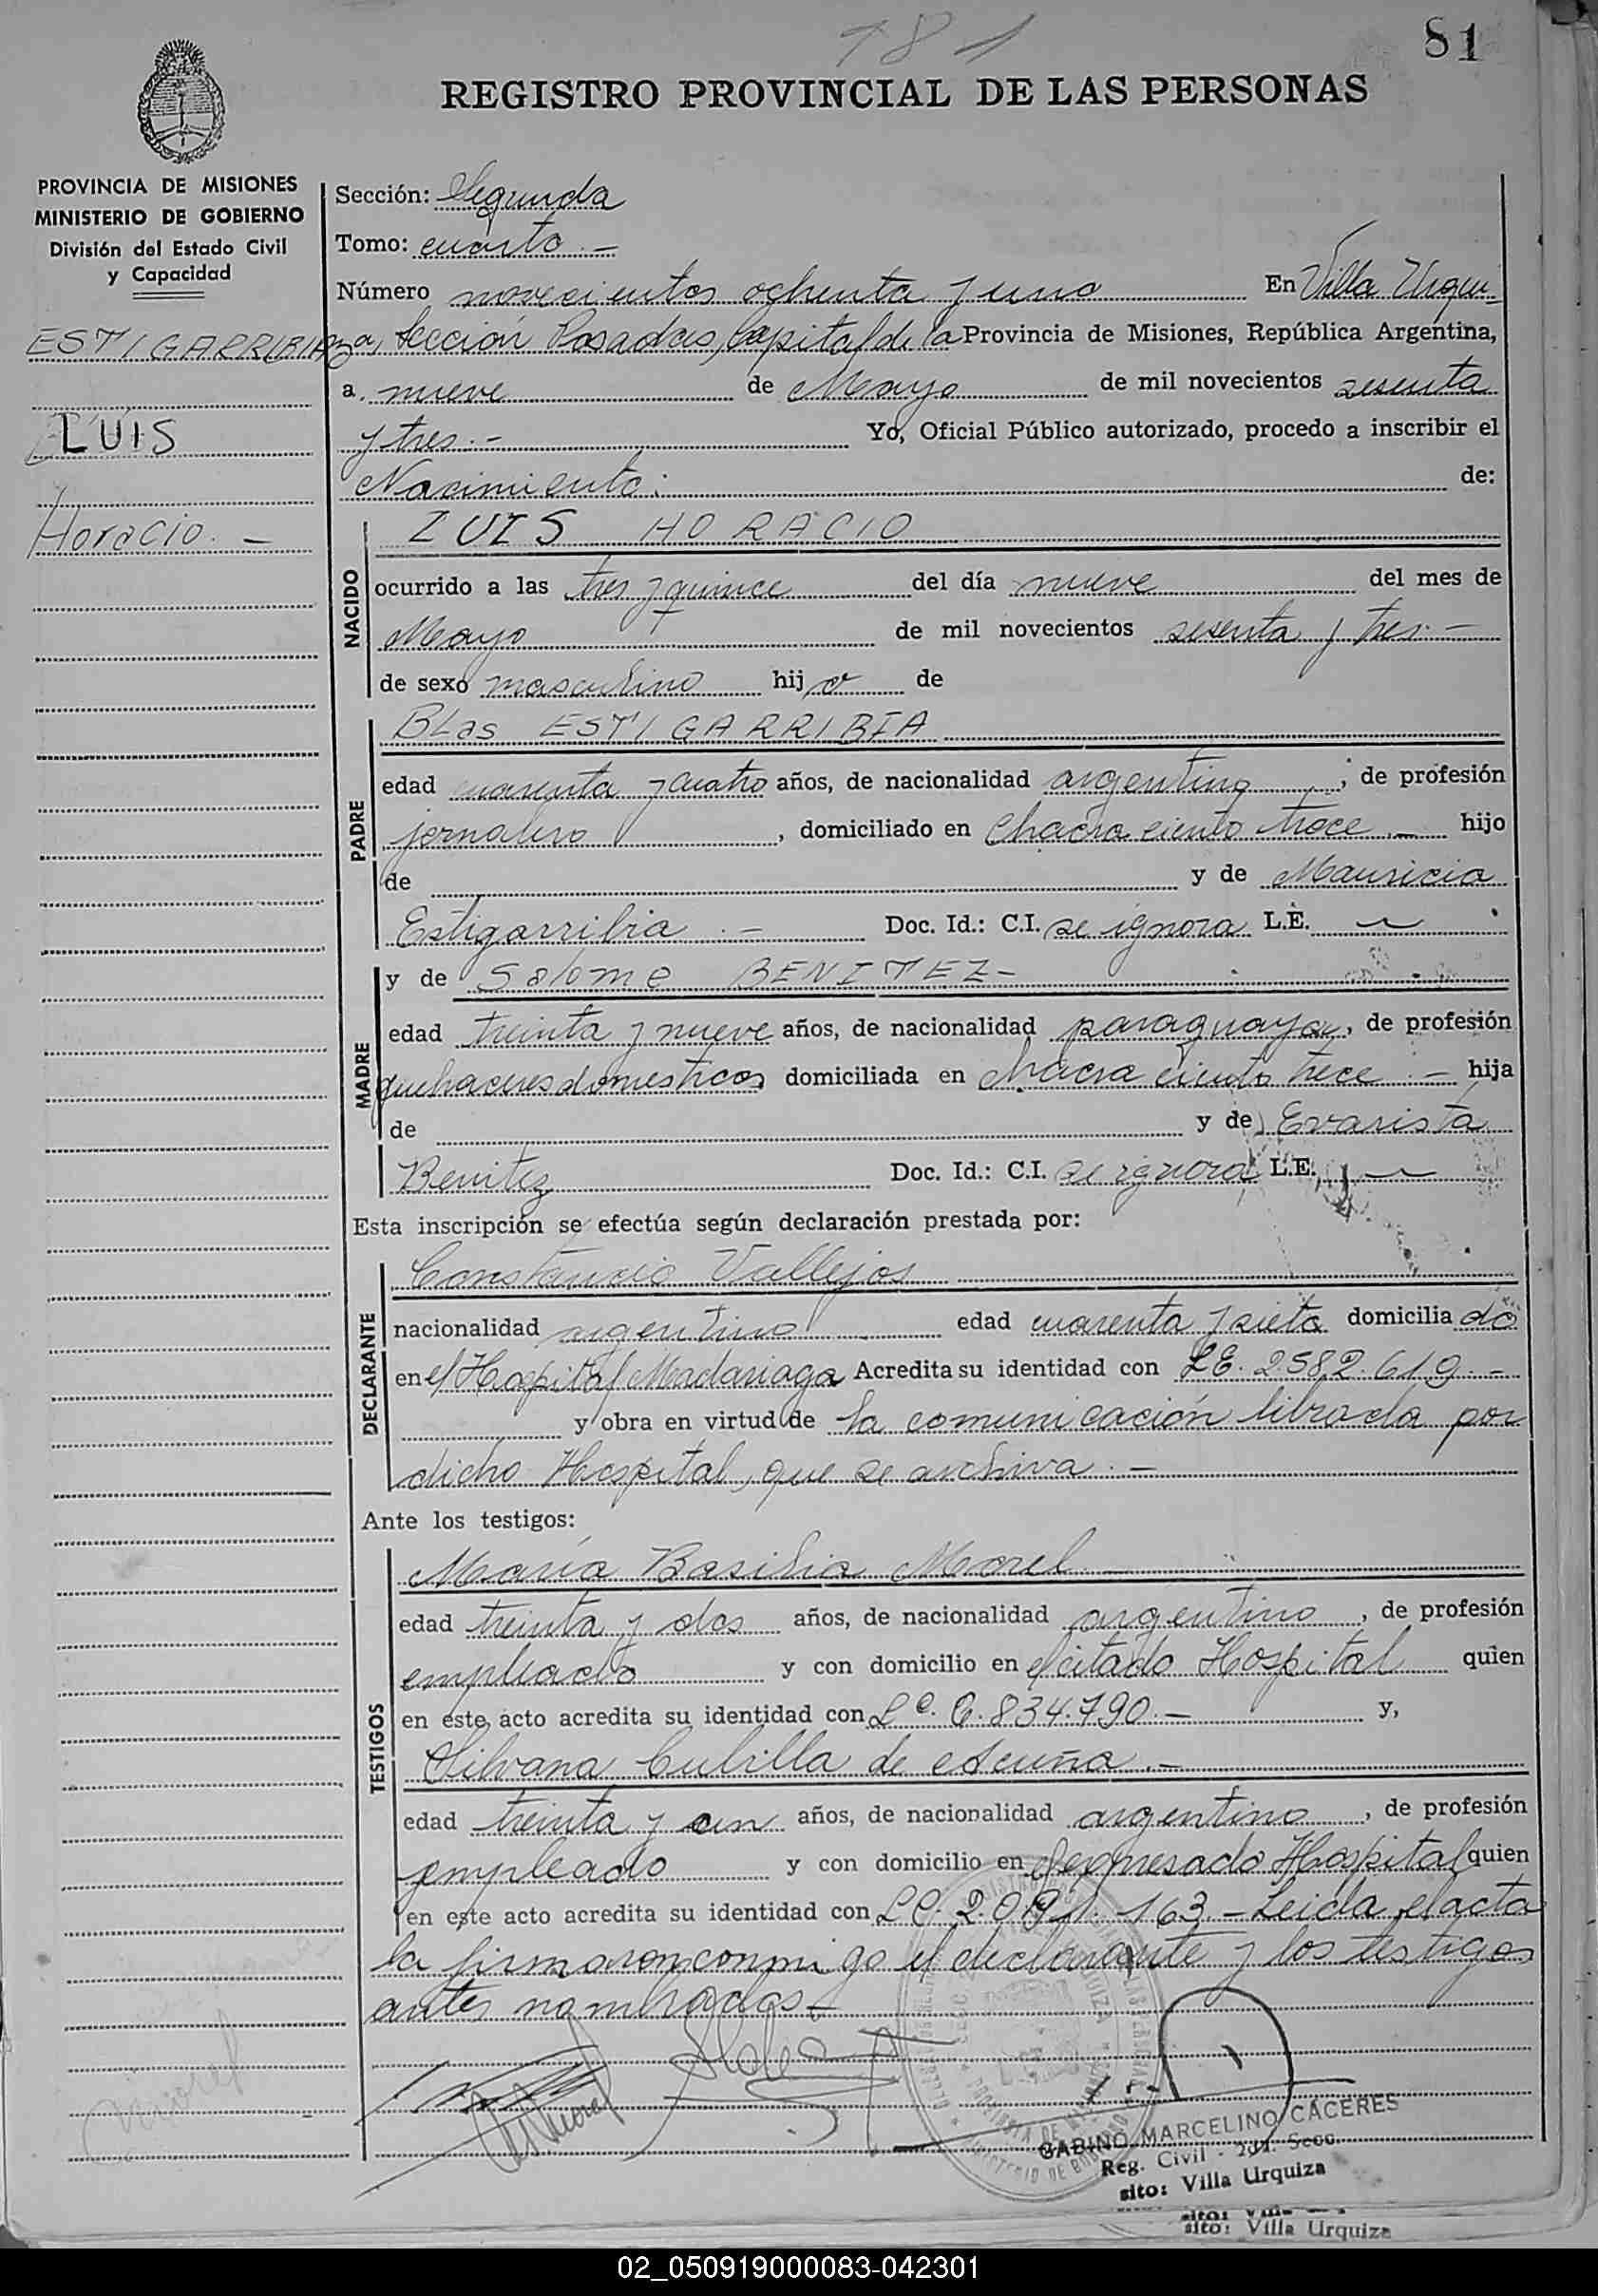 81
REGISTRO PROVINCIAL DE LAS PERSONAS
PROVINCIA DE MISIONES
MINISTERIO DE GOBIERNO
División del Estado Civil
y Capacidad
ESTIGARRIBIA
LUIS
Horacio. —
Sección: Segunda
Tomo: cuarto. —
Número novecientos ochenta y uno En Villa Urqui-
za, Sección Posadas, Capital de la Provincia de Misiones, República Argentina,
a nueve de Mayo de mil novecientos sesenta
y tres.- Yo, Oficial Público autorizado, procedo a inscribir el
Nacimiento: de:
NACIDO
LUIS HORACIO
ocurrido a las tres y quince del día nueve del mes de
Mayo de mil novecientos sesenta y tres.-
de sexo masculino hijo de
PADRE
Blas ESTIGARRIBIA
edad cuarenta y cuatro años, de nacionalidad argentino, de profesión
jornalero, domiciliado en Chacra ciento trece. — hijo
de y de Mauricia
Estigarribia. — Doc. Id.: C.I. se ignora L.E. —
MADRE
y de Salome BENITEZ-
edad treinta y nueve años, de nacionalidad paraguaya, de profesión
quehaceres domesticos domiciliada en chacra ciento trece. — hija
de y de Evarista
Benitez Doc. Id.: C.I. se ignora L.E. —
Esta inscripción se efectúa según declaración prestada por:
DECLARANTE
Constancio Vallejos
nacionalidad argentino edad cuarenta y siete domiciliado
en el Hospital Madariaga Acredita su identidad con LE. 2.582.619. —
y obra en virtud de la comunicación librada por
dicho Hospital, que se archiva. —
Ante los testigos:
TESTIGOS
María Basilia Morel
edad treinta y dos años, de nacionalidad argentino, de profesión
empleado y con domicilio en el citado Hospital quien
en este acto acredita su identidad con LC. 6.834.790. — y,
Silvana Cubilla de Acuña. —
edad treinta y un años, de nacionalidad argentino, de profesión
empleado y con domicilio en el expresado Hospital quien
en este acto acredita su identidad con LC. 163 - Leida el acta
la firmaron conmigo el declarante y los testigos
antes nombrados. —
GABINO MARCELINO CACERES
Reg. Civil - 2da. Secc.
sito: Villa Urquiza
sito: Villa Urquiza
02_050919000083-042301